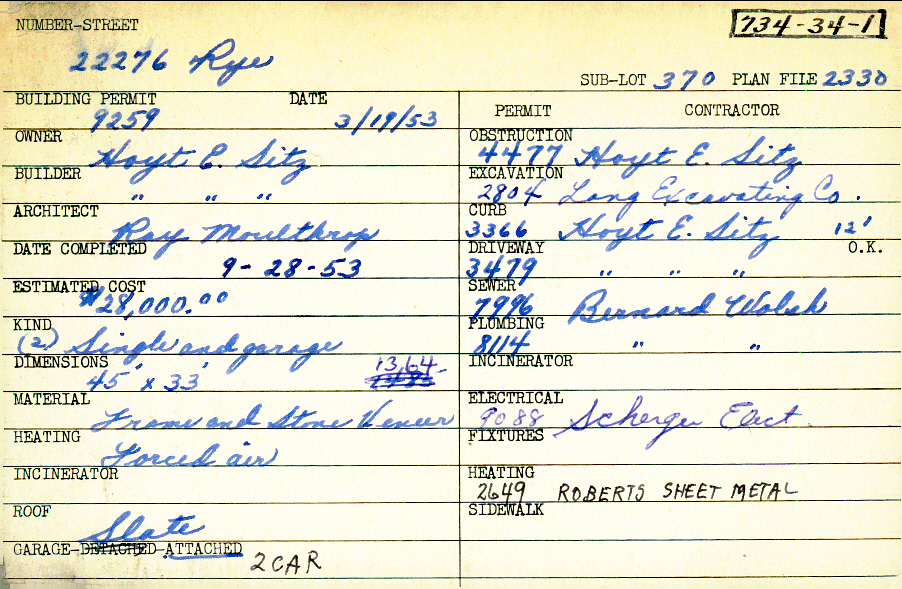 NUMBER-STREET
734-34-1
22276 Rye
SUB-LOT 370 PLAN FILE 2330
BUILDING PERMIT DATE
9259 3/19/53
OWNER
Hoyt E. Sitz
BUILDER
" " "
ARCHITECT
Ray Moulthrop
DATE COMPLETED
9-28-53
ESTIMATED COST
$28,000.00
KIND
(2) Single and garage
DIMENSIONS 1364
45' x 33'
MATERIAL
Frame and Stone Veneer
HEATING
Forced air
INCINERATOR
ROOF
Slate
GARAGE-DETACHED-ATTACHED
2 CAR
PERMIT CONTRACTOR
OBSTRUCTION
4477 Hoyt E. Sitz
EXCAVATION
2804 Lang Excavating Co.
CURB
3366 Hoyt E. Sitz 12'
DRIVEWAY O.K.
3479 " " "
SEWER
7996 Bernard Walsh
PLUMBING
8114 " "
INCINERATOR
ELECTRICAL
9088 Scherger Elect.
FIXTURES
HEATING
2649 ROBERTS SHEET METAL
SIDEWALK